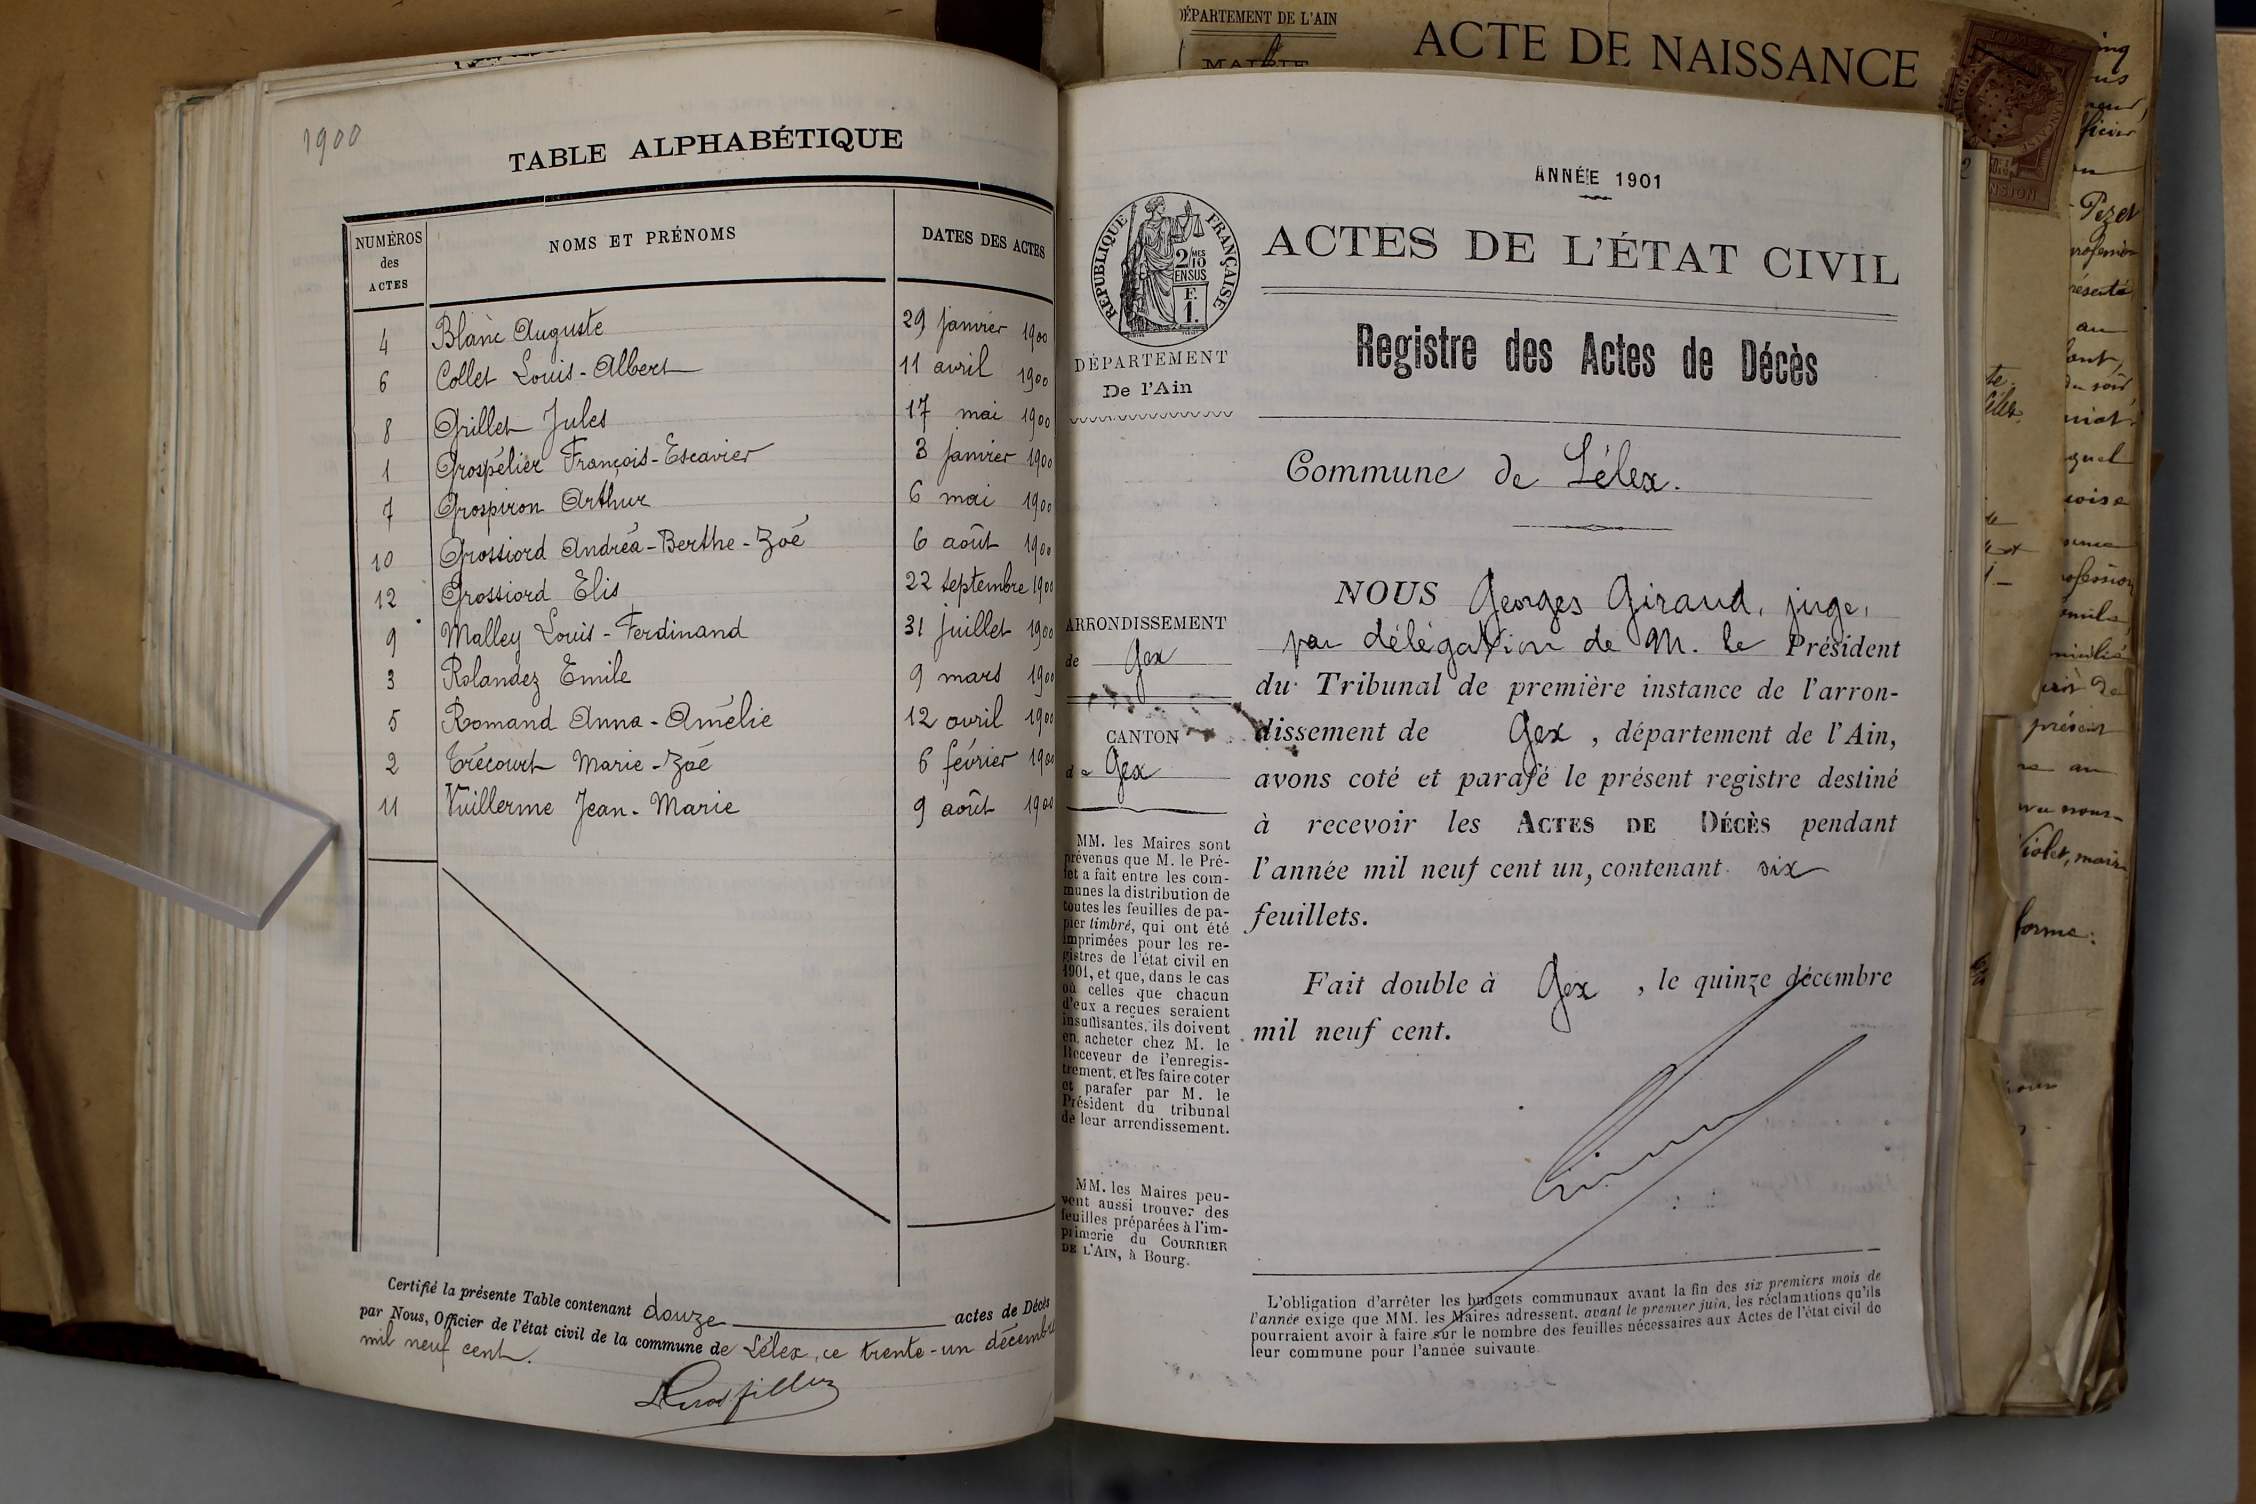 1900
TABLE ALPHABÉTIQUE
NUMÉROS des ACTES
NOMS ET PRÉNOMS
DATES DES ACTES
4 Blanc Auguste 29 janvier 1900
6 Collet Louis-Albert 11 avril 1900
8 Grillet Jules 17 mai 1900
1 Grospélier François-Escavier 3 janvier 1900
7 Grospiron Arthur 6 mai 1900
10 Grossiord Andréa-Berthe-Zoé 6 août 1900
12 Grossiord Elis 22 septembre 1900
9 Malley Louis-Ferdinand 31 juillet 1900
3 Rolandez Emile 9 mars 1900
5 Romand Anna-Amélie 12 avril 1900
2 Trécourt Marie-Zoé 6 février 1900
11 Vuillerme Jean-Marie 9 août 1900
Certifié la présente Table contenant douze actes de Décès
par Nous, Officier de l'état civil de la commune de Lélex, ce trente-un décembre
mil neuf cent.
DÉPARTEMENT DE L'AIN
MAIRIE
ACTE DE NAISSANCE
ANNÉE 1901
RÉPUBLIQUE FRANÇAISE
2/10 MES
EN SUS
F.
1.
DÉPARTEMENT
De l'Ain
ACTES DE L'ÉTAT CIVIL
Registre des Actes de Décès
Commune de Lélex.
ARRONDISSEMENT
de Gex
CANTON
de Gex
MM. les Maires sont
prévenus que M. le Pré-
fet a fait entre les com-
munes la distribution de
toutes les feuilles de pa-
pier timbré, qui ont été
imprimées pour les re-
gistres de l'état civil en
1901, et que, dans le cas
où celles que chacun
d'eux a reçues seraient
insuffisantes, ils doivent
en acheter chez M. le
Receveur de l'enregis-
trement, et les faire coter
et parafer par M. le
Président du tribunal
de leur arrondissement.
MM. les Maires peu-
vent aussi trouver des
feuilles préparées à l'im-
primerie du COURRIER
DE L'AIN, à Bourg.
NOUS Georges Giraud, juge,
par délégation de M. le Président
du Tribunal de première instance de l'arron-
dissement de Gex, département de l'Ain,
avons coté et parafé le présent registre destiné
à recevoir les ACTES DE DÉCÈS pendant
l'année mil neuf cent un, contenant six
feuillets.
Fait double à Gex, le quinze décembre
mil neuf cent.
L'obligation d'arrêter les budgets communaux avant la fin des six premiers mois de
l'année exige que MM. les Maires adressent, avant le premier juin, les réclamations qu'ils
pourraient avoir à faire sur le nombre des feuilles nécessaires aux Actes de l'état civil de
leur commune pour l'année suivante.
Pezet
au
présent
Violet, maire
forme: